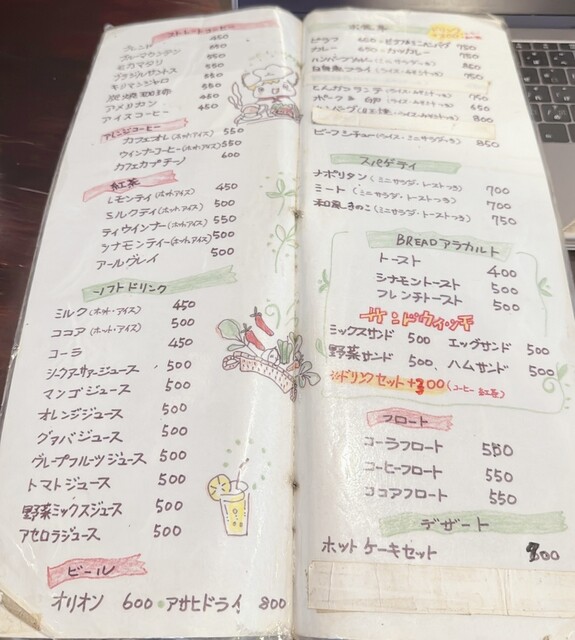 ストレートコーヒー
ブレンド 450
ブルーマウンテン 650
ヒカマタリ 550
ブラジルサントス 550
キリマンジャロ 550
炭焼コーヒー 550
アメリカン 450
アイスコーヒー 450
アレンジコーヒー
カフェオレ(ホット・アイス) 550
ウィンナーコーヒー(ホット・アイス) 550
カフェカプチーノ 600
紅茶
レモンティ(ホット・アイス) 450
ミルクティ(ホット・アイス) 500
ティウインナー(ホット・アイス) 550
シナモンティー(ホット・アイス) 500
アールグレイ 500
ソフトドリンク
ミルク(ホット・アイス) 450
ココア(ホット・アイス) 500
コーラ 450
シークァーサージュース 500
マンゴジュース 500
オレンジジュース 500
グァバジュース 500
グレープフルーツジュース 500
トマトジュース 500
野菜ミックスジュース 500
アセロラジュース 500
ビール
オリオン 600・アサヒドライ 800
お食事
ピラフ 650
カレー 650・カツカレー 750
850
750
750
650
800
ビーフシチュー(ライス・ミニサラダ付) 850
スパゲティ
ナポリタン(ミニサラダ・トーストつき) 700
ミート(ミニサラダ・トーストつき) 700
和風きのこ(ミニサラダ・トーストつき) 750
BREADアラカルト
トースト 400
シナモントースト 500
フレンチトースト 500
サンドウィッチ
ミックスサンド 500 エッグサンド 500
野菜サンド 500、ハムサンド 500
※ドリンクセット+300(コーヒー 紅茶)
フロート
コーラフロート 550
コーヒーフロート 550
ココアフロート 550
デザート
ホットケーキセット